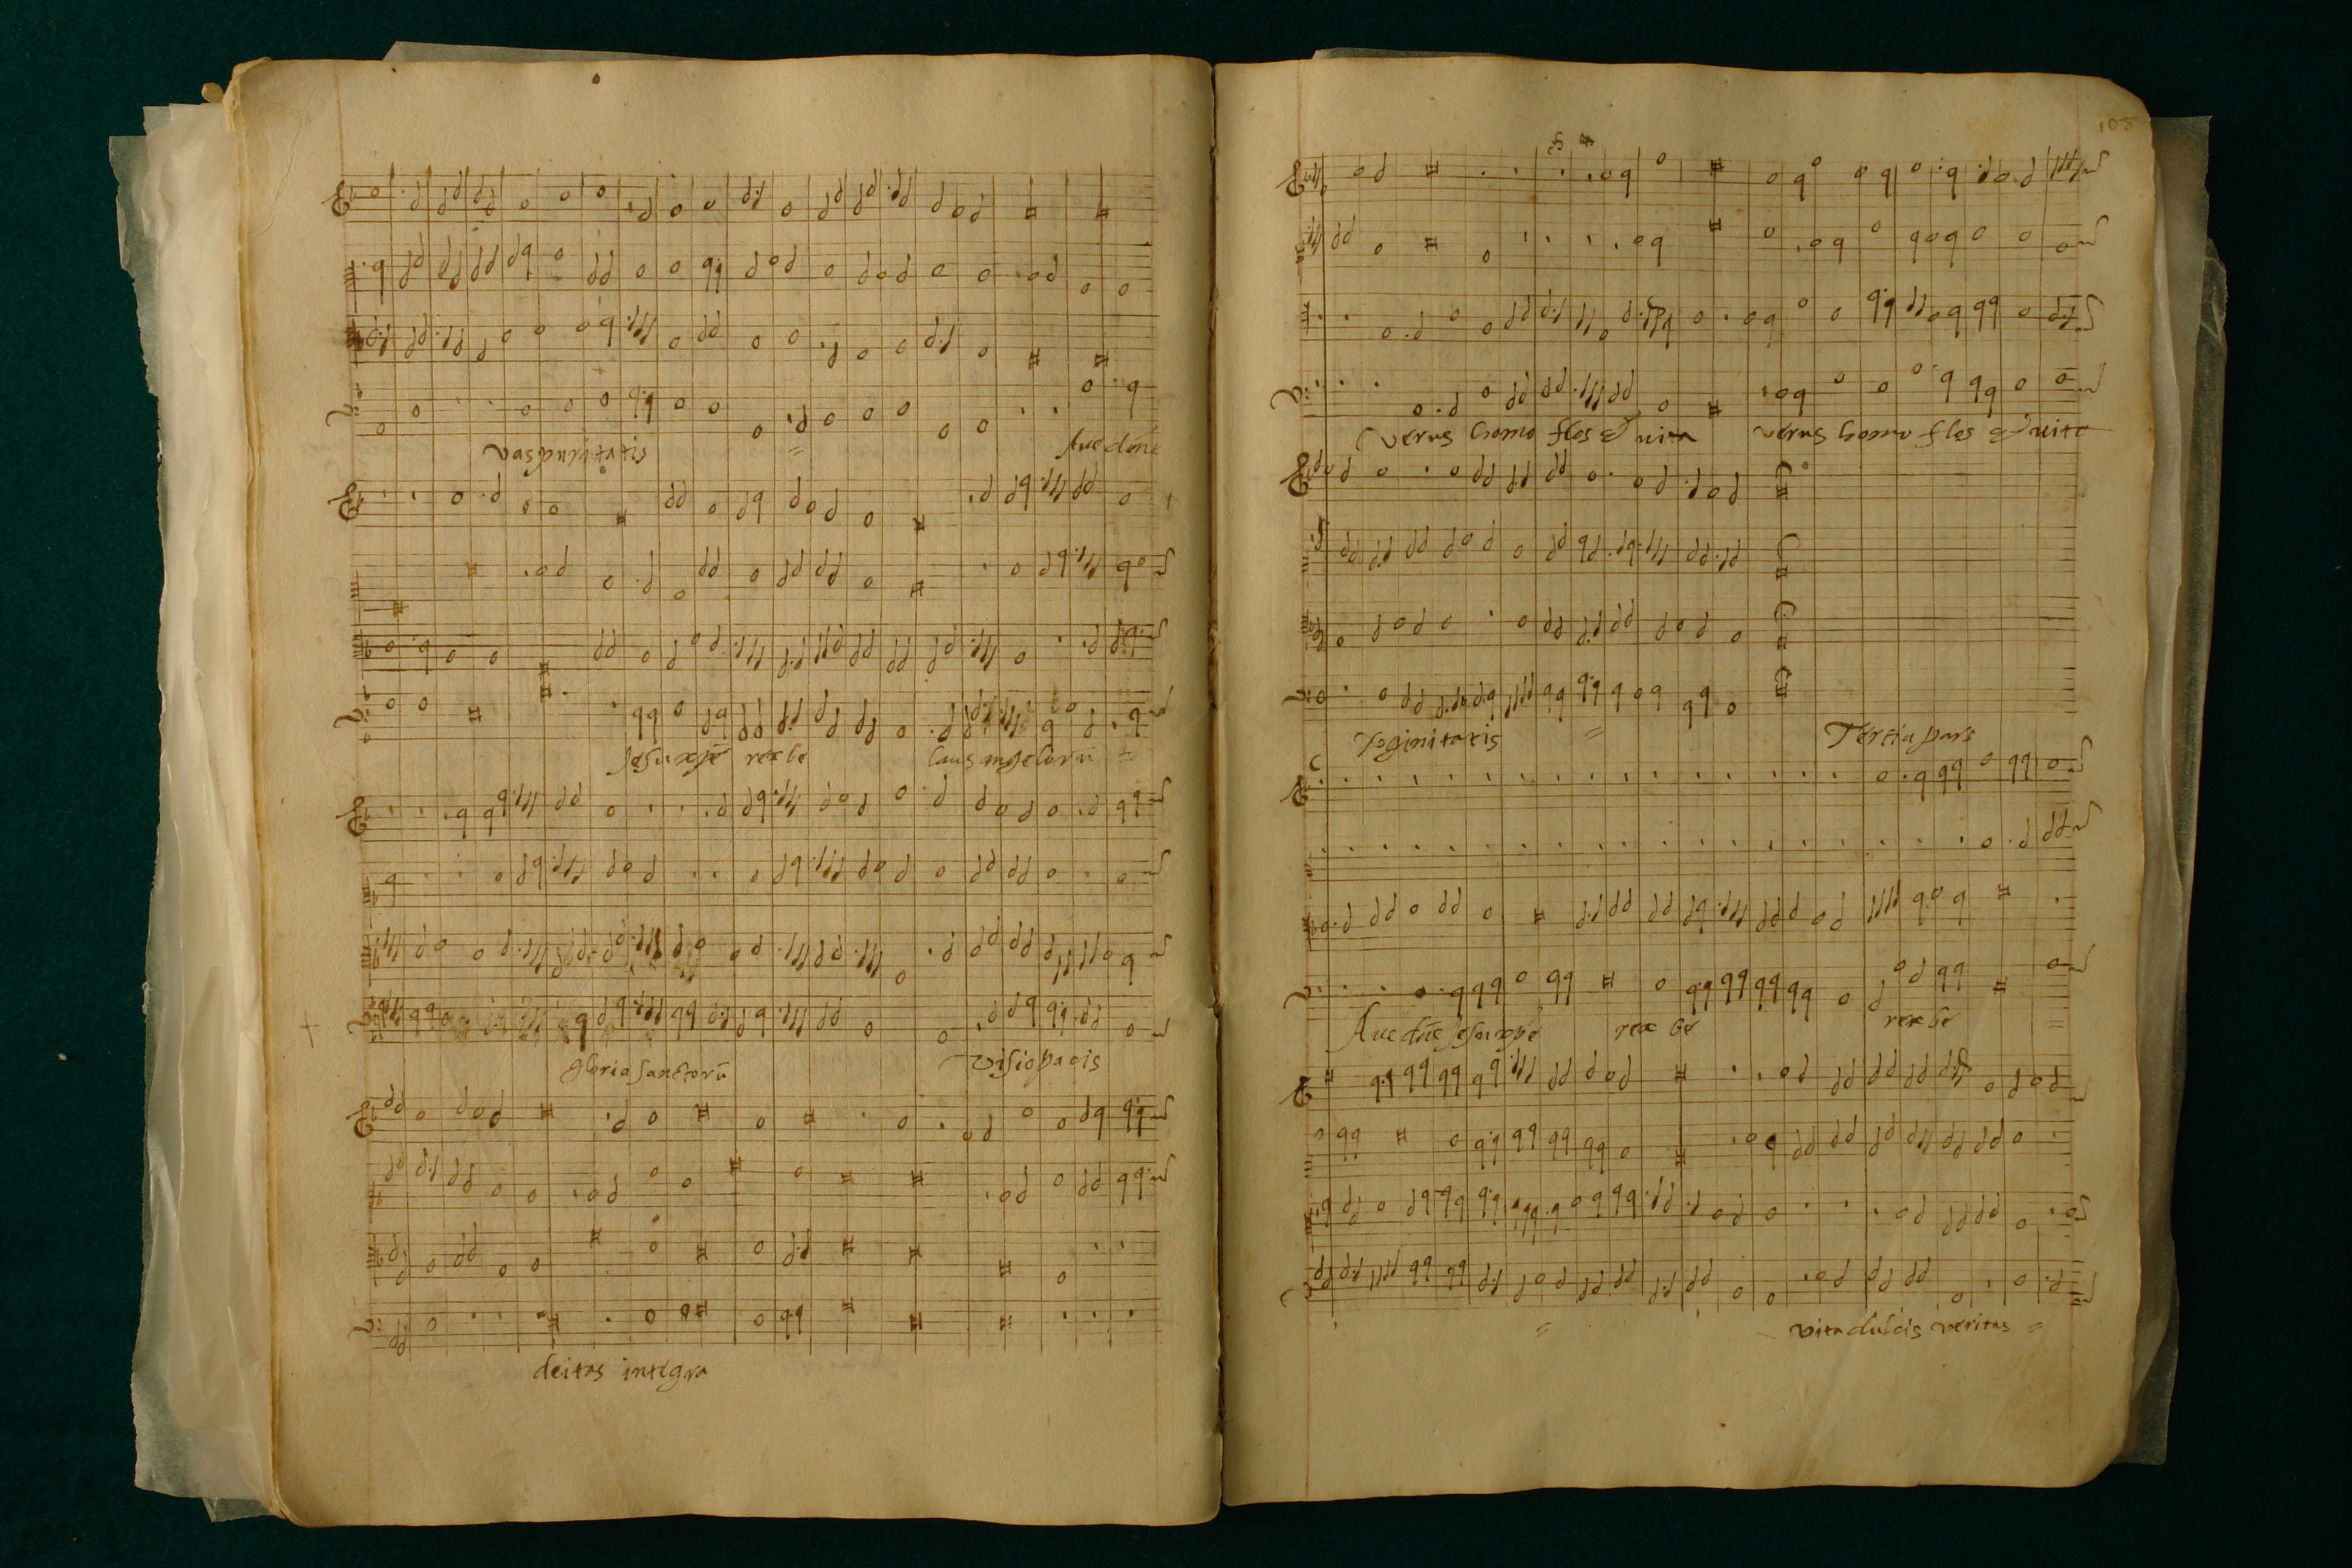 vas puritatis = Ave dñe
Jesu xpe rex be laus angelorũ =
gloria sanctorũ visio pacis
deitas integra
103
verus homo flos & vita verus homo flos & vite
Vọginitatis = Tertia pars
Ave dñe Jesu xpe rex be rex be =
= vita dulcis veritas =